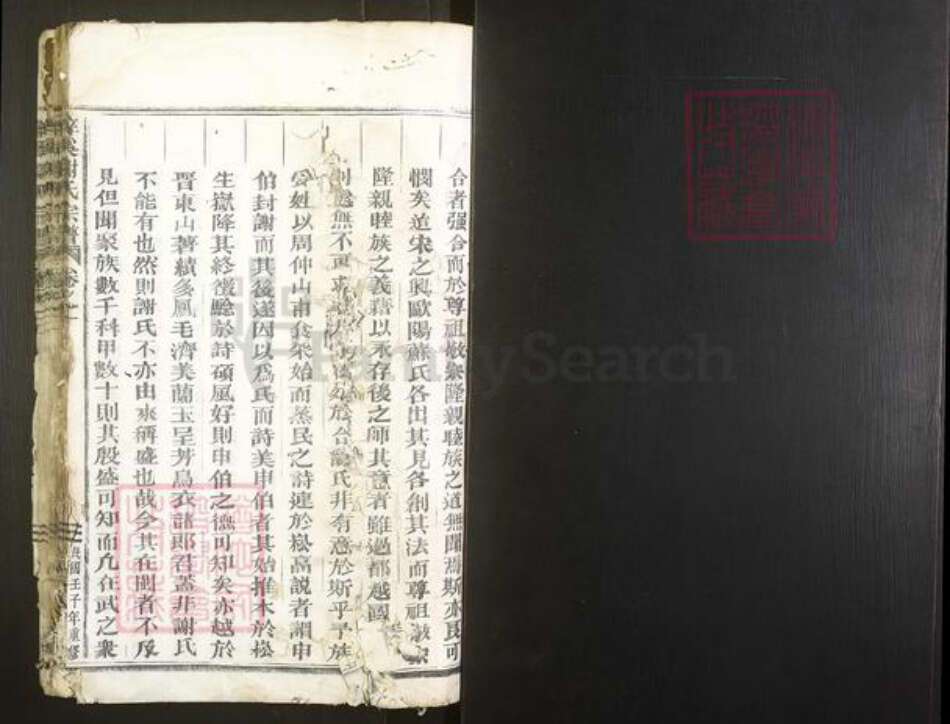 合者强合而於尊祖敬宗隆親睦族之道無聞焉斯亦良可
憫矣迨宋之興歐陽蘇氏各出其見各創其法而尊祖敬宗
隆親睦族之義藉以永存後之師其意者雖過都越國
無不可 於合 氏非有意於斯乎予族
姓以周仲山甫食樊始而蒸民之詩連於崧高說者謂申
伯封謝而其後遂因以爲氏而詩美申伯者其始推本於崧
生嶽降其終徵驗於詩碩風好則申伯之德可知矣亦越於
晉東山著績多鳳毛濟美蘭玉呈芳烏衣諸郎君蓋非謝氏
不能有也然則謝氏不亦由來稱盛也哉今其在閩者不及
見但聞聚族數千科甲數十則其殷盛可知而凡在武之衆
謝氏宗譜
卷之一
民國壬子年重修
FamilySearch